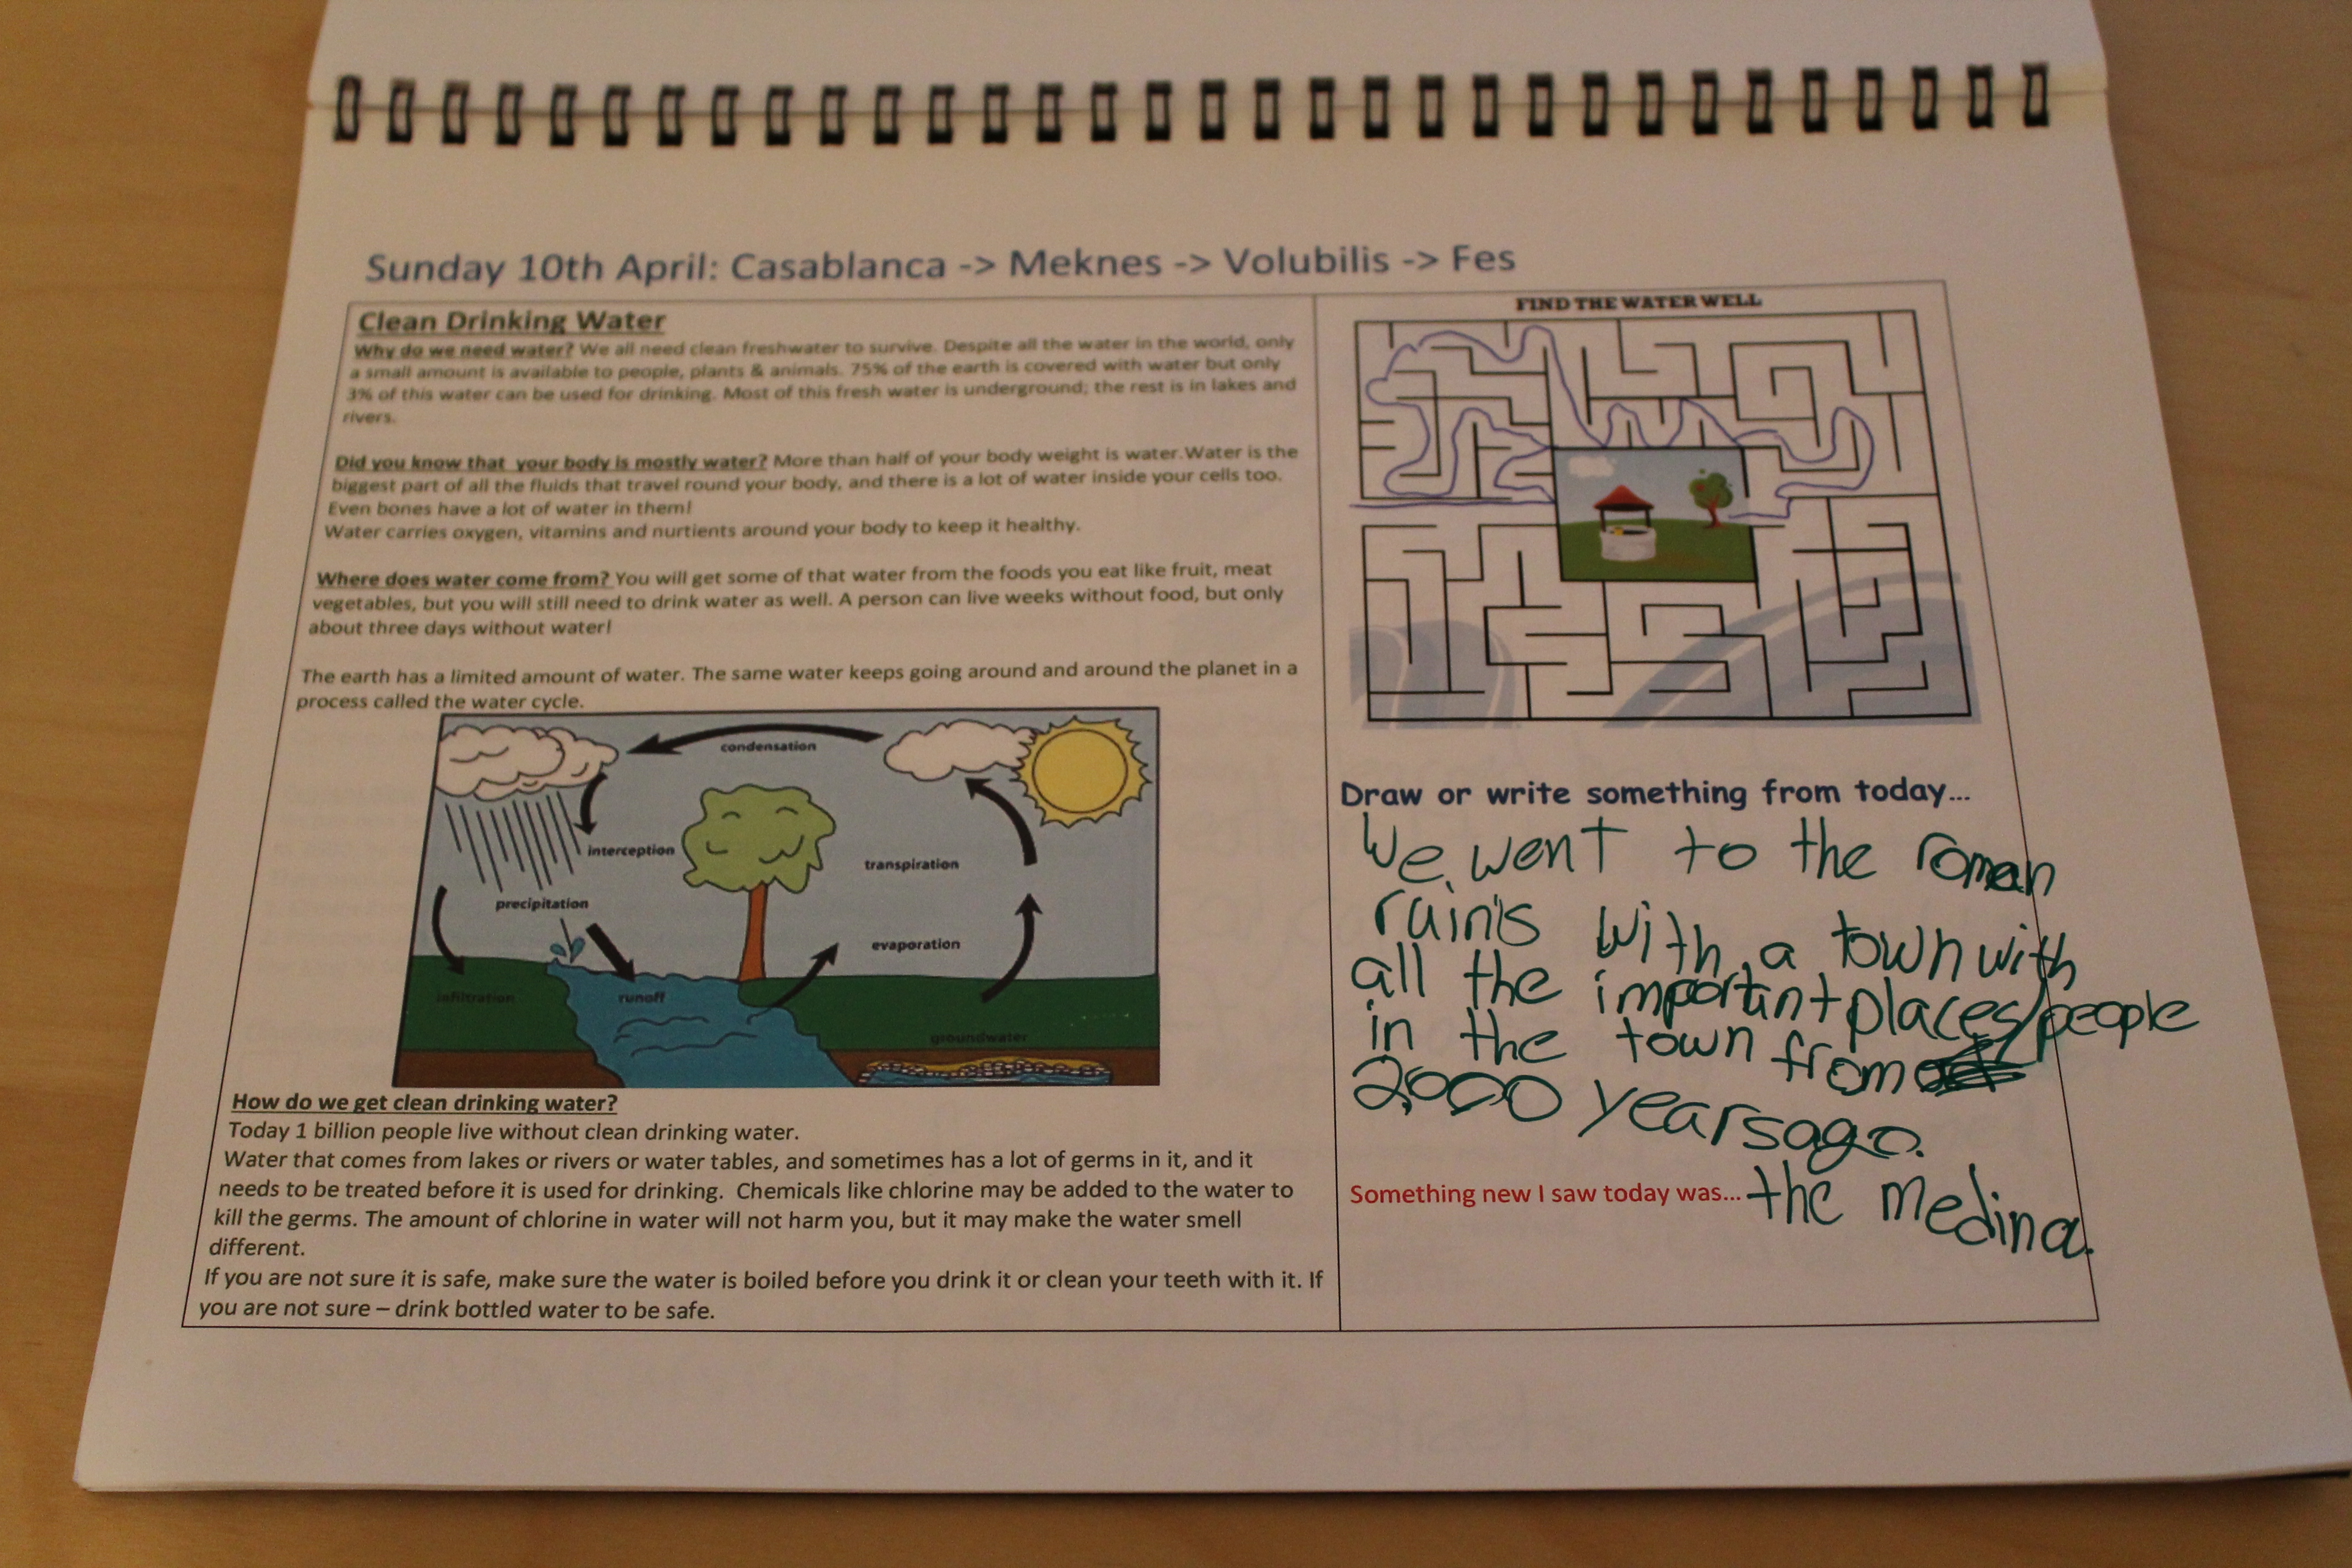 Sunday 10th April: Casablanca -> Meknes -> Volubilis -> Fes
Clean Drinking Water
Why do we need water? We all need clean freshwater to survive. Despite all the water in the world, only
a small amount is available to people, plants & animals. 75% of the earth is covered with water but only
3% of this water can be used for drinking. Most of this fresh water is underground; the rest is in lakes and
rivers.
Did you know that  your body is mostly water? More than half of your body weight is water.Water is the
biggest part of all the fluids that travel round your body, and there is a lot of water inside your cells too.
Even bones have a lot of water in them!
Water carries oxygen, vitamins and nurtients around your body to keep it healthy.
Where does water come from? You will get some of that water from the foods you eat like fruit, meat
vegetables, but you will still need to drink water as well. A person can live weeks without food, but only
about three days without water!
The earth has a limited amount of water. The same water keeps going around and around the planet in a
process called the water cycle.
condensation
interception
transpiration
precipitation
evaporation
infiltration
runoff
groundwater
How do we get clean drinking water?
Today 1 billion people live without clean drinking water.
Water that comes from lakes or rivers or water tables, and sometimes has a lot of germs in it, and it
needs to be treated before it is used for drinking.  Chemicals like chlorine may be added to the water to
kill the germs. The amount of chlorine in water will not harm you, but it may make the water smell
different.
If you are not sure it is safe, make sure the water is boiled before you drink it or clean your teeth with it. If
you are not sure – drink bottled water to be safe.
FIND THE WATER WELL
Draw or write something from today...
We went to the roman
ruins with a town with
all the important places/people
in the town from
2,000 years ago.
Something new I saw today was... the medina.